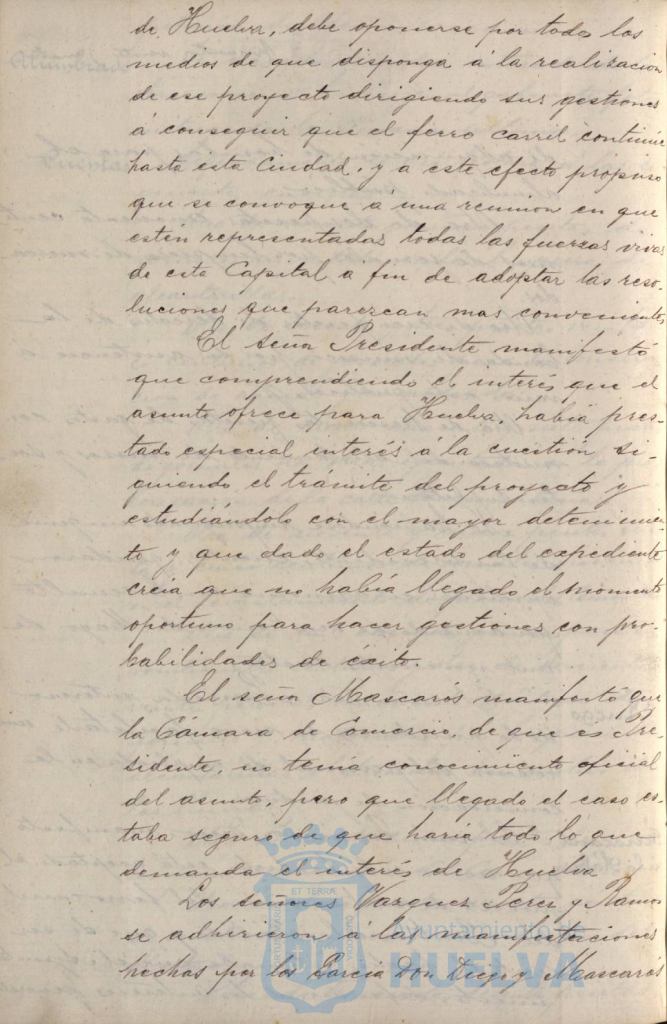 de Huelva, debe oponerse por todos los
medios de que disponga á la realizacion
de ese proyecto dirigiendo sus gestiones
á conseguir que el ferro carril continue
hasta esta Ciudad, y á este efecto propuso
que se convoque á una reunion en que
estén representadas todas las fuerzas vivas
de esta Capital á fin de adoptar las reso-
luciones que parezcan mas convenientes
El señor Presidente manifestó
que comprendiendo el interés que el
asunto ofrece para Huelva, había pres-
tado especial interés á la cuestión si-
guiendo el trámite del proyecto y
estudiándolo con el mayor detenimien-
to y que dado el estado del expediente
creia que no había llegado el momento
oportuno para hacer gestiones con pro-
babilidades de éxito.
El señor Mascarós manifestó que
la Cámara de Comercio, de que es Pre-
sidente, no tenia conocimiento oficial
del asunto, pero que llegado el caso es-
taba seguro de que haria todo lo que
demanda el interés de Huelva
Los señores Vazquez Perez y Ramos
se adhirieron á las manifestaciones
hechas por los Garcia Don Diego y Mascarós
ET TERRÆ
Ayuntamiento de
HUELVA